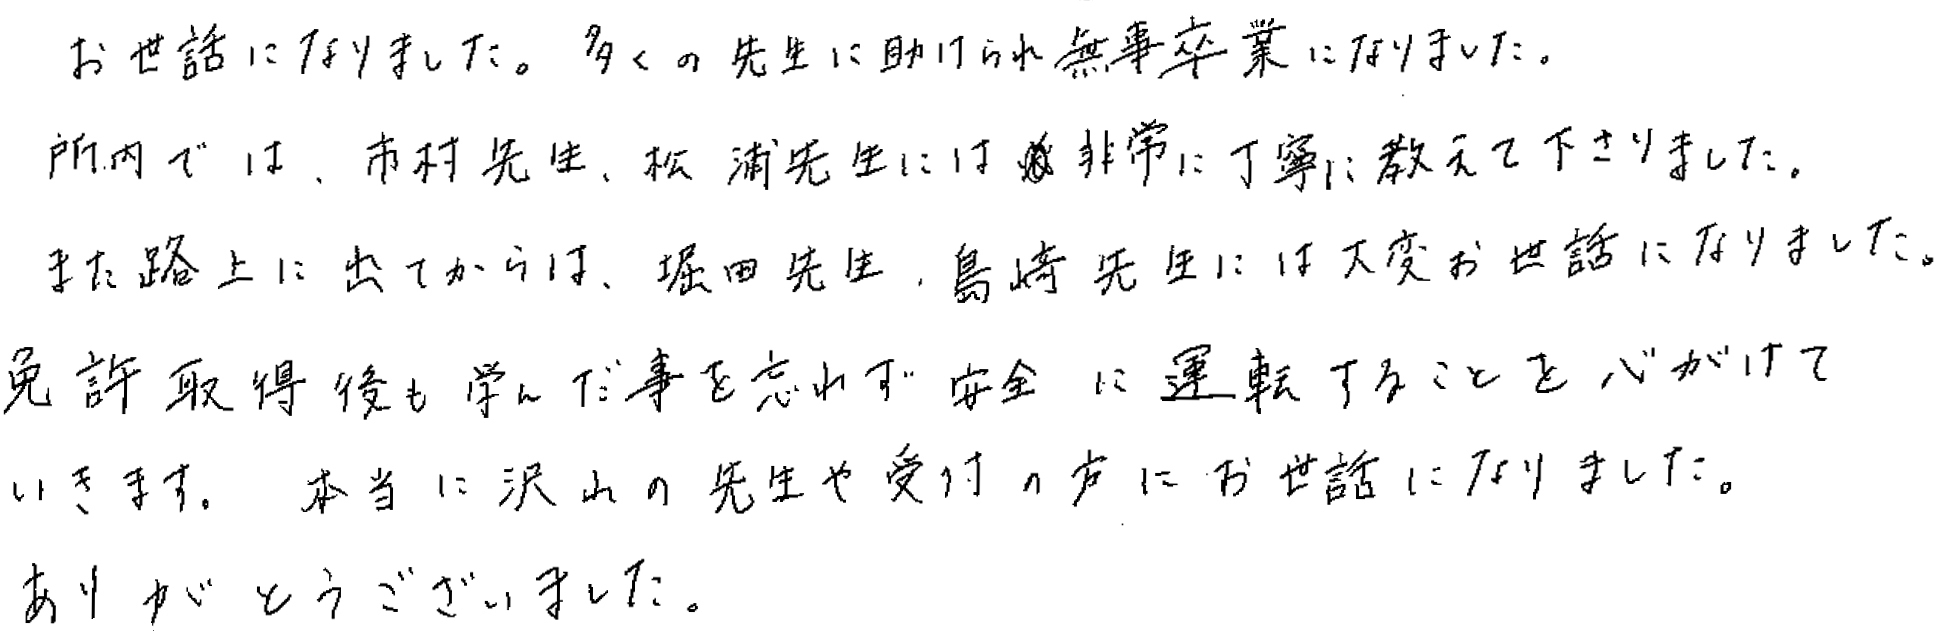 お世話になりました。多くの先生に助けられ無事卒業になりました。
所内では、市村先生、松浦先生には非常に丁寧に教えて下さりました。
また路上に出てからは、堀田先生、島崎先生には大変お世話になりました。
免許取得後も学んだ事を忘れず安全に運転することを心がけて
いきます。本当に沢山の先生や受付の方にお世話になりました。
ありがとうございました。